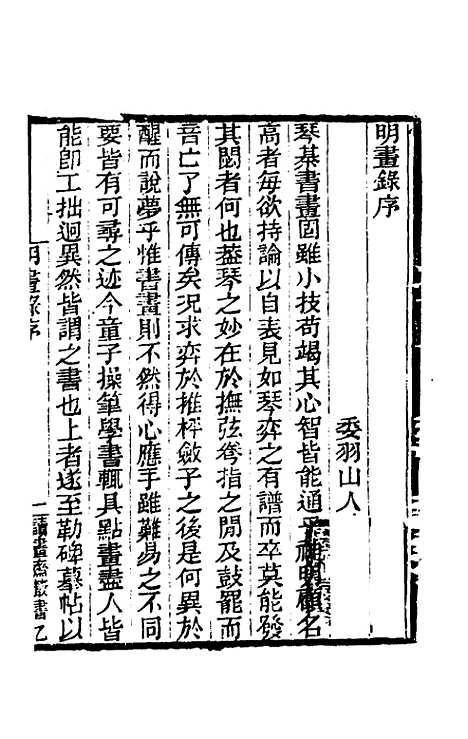 明畫錄序
委羽山人
琴棊書畫固雖小技苟竭其心智皆能通乎神明顧名
高者每欲持論以自表見如琴弈之有譜而卒莫能發
其閟者何也葢琴之妙在於撫弦眷指之閒及鼓罷而
音亡了無可傳矣况求弈於推枰斂子之後是何異於
醒而說夢乎惟書畫則不然得心應手雖難易之不同
要皆有可尋之迹今童子操筆學書輒具點畫盡人皆
能卽工拙迥異然皆謂之書也上者遂至勒碑摹帖以
明畫錄序
一
讀畫齋叢書